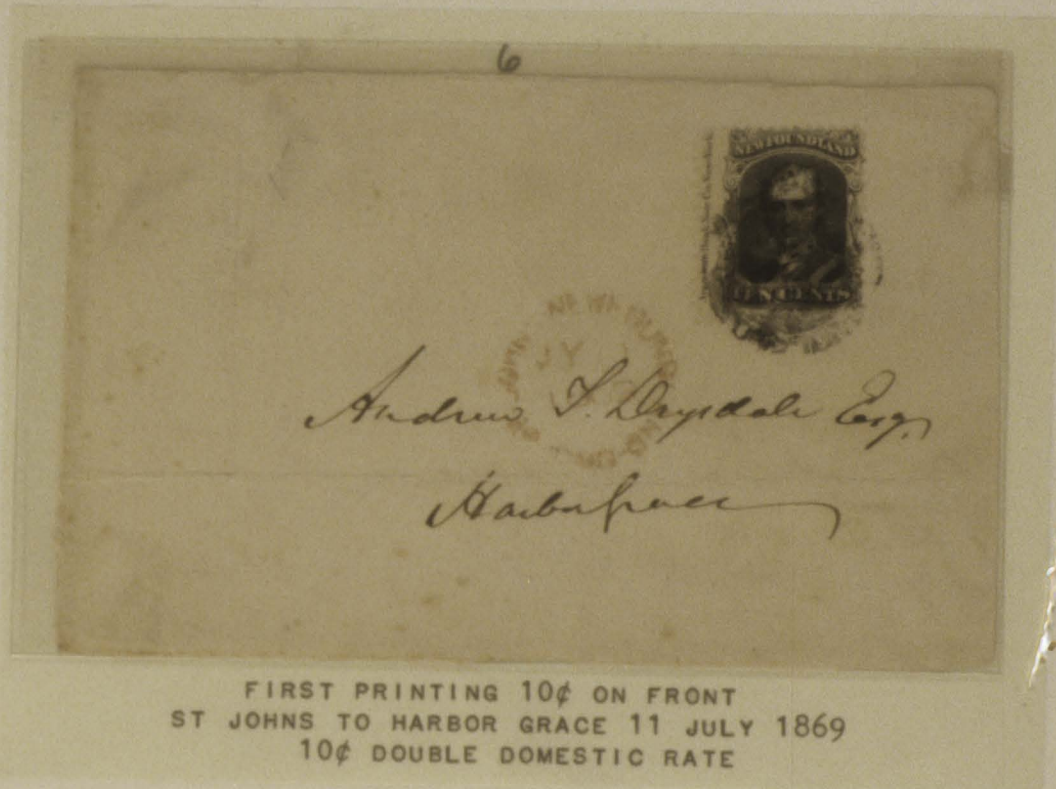 6
NEWFOUNDLAND
TEN CENTS
NEWFOUNDLAND
JY
Andrew T. Drysdale Esq.
Harbor Grace
FIRST PRINTING 10¢ ON FRONT
ST JOHNS TO HARBOR GRACE 11 JULY 1869
10¢ DOUBLE DOMESTIC RATE